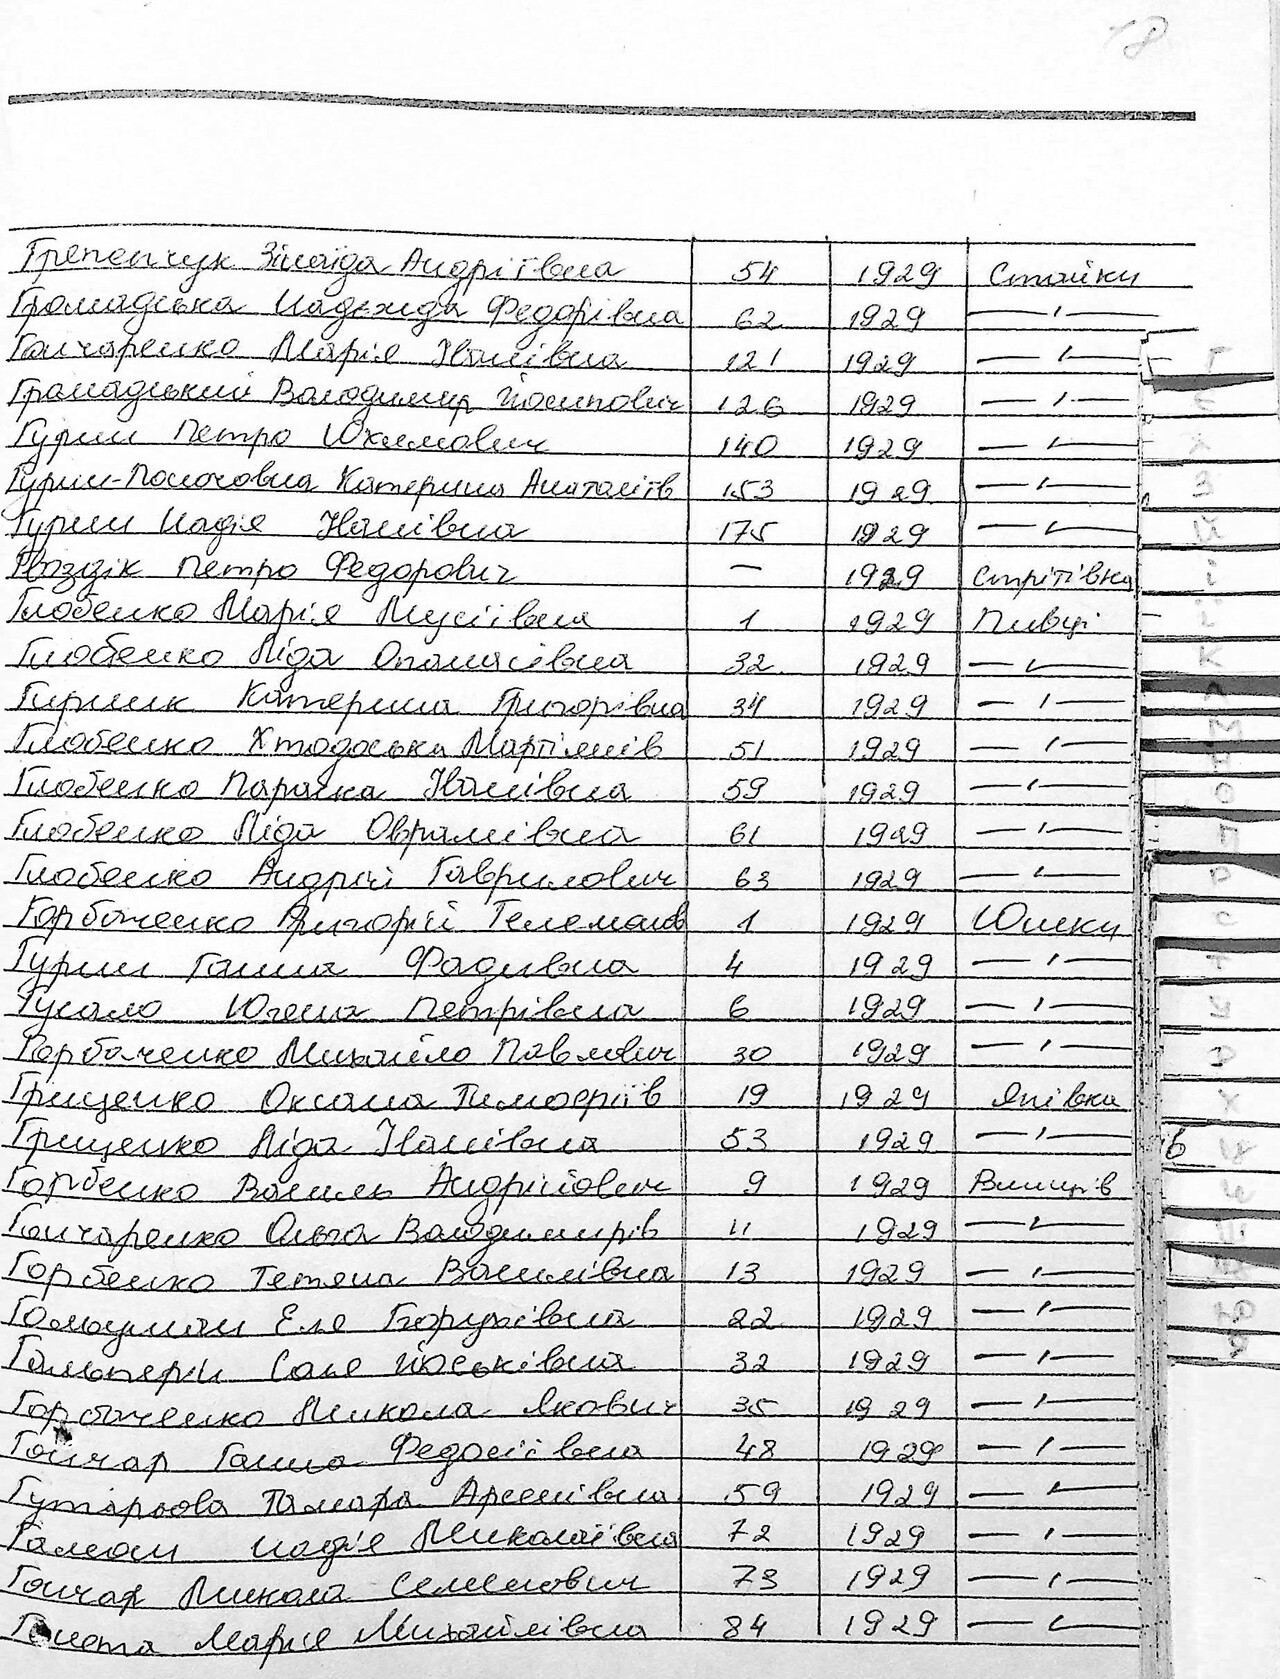 18
Грепенчук Зінаїда Андріївна 54 1929 Стайки
Громадська Надежда Федорівна 62 1929 —"—
Гончаренко Марія Іванівна 121 1929 —"—
Громадський Володимир Йосипович 126 1929 —"—
Гурин Петро Юхимович 140 1929 —"—
Гурин- Катерина Анатоліїв 153 1929 —"—
Гурин Надія Іванівна 175 1929 —"—
Гвоздік Петро Федорович — 1929 Стрітівка
Глобенко Марія Мусіївна 1 1929 Пивці
Глобенко Ліда Опанасівна 32 1929 —"—
Катерина Григорівна 34 1929 —"—
Глобенко Мартіянів 51 1929 —"—
Глобенко Параска Іванівна 59 1929 —"—
Глобенко Ліда Оврамівна 61 1929 —"—
Глобенко Андрій Гаврилович 63 1929 —"—
Горбаченко Григорій 1 1929 Юшки
Гурин Ганна 4 1929 —"—
Гусало Югена Петрівна 6 1929 —"—
Горбаченко Михайло Павлович 30 1929 —"—
Грищенко Оксана Тимофіїв 19 1929 Янівка
Грищенко Ліда Іванівна 53 1929 —"—
Горбенко Василь Андрійович 9 1929
Гончаренко Ольга Володимирів 11 1929 —"—
Горбенко Тетяна Василівна 13 1929 —"—
Еля 22 1929 —"—
Гальперін Соня Йоськівна 32 1929 —"—
Горбаченко Микола Якович 35 1929 —"—
Гончар Ганна Федосіївна 48 1929 —"—
Тамара Арсенівна 59 1929 —"—
Надія Миколаївна 72 1929 —"—
Гончар Микола Семенович 73 1929 —"—
Марія Михайлівна 84 1929 —"—